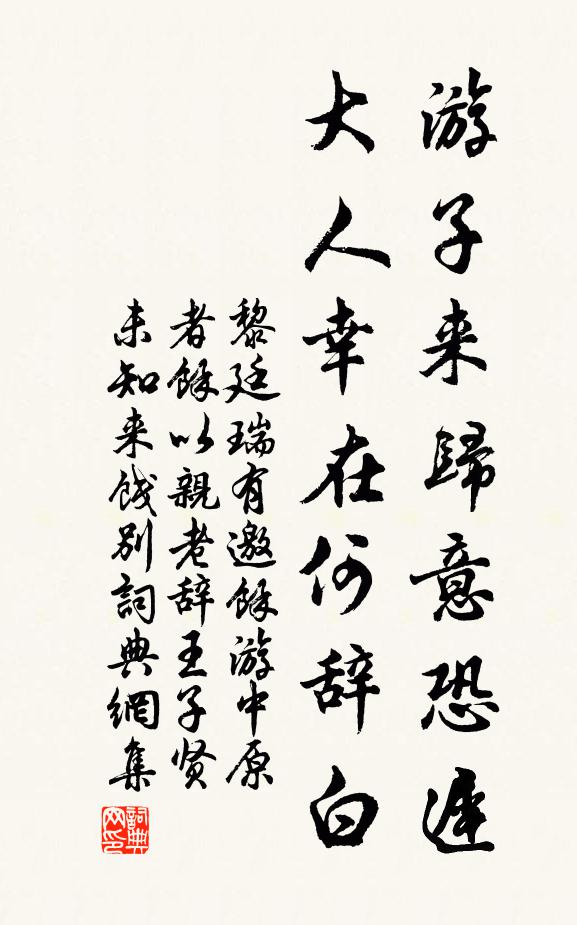 游子来歸意恐遲
大人幸在何辞白
黎廷瑞有邀餘游中原
者餘以親老辞王子贤
未知来餞别詞典網集
詞典网印